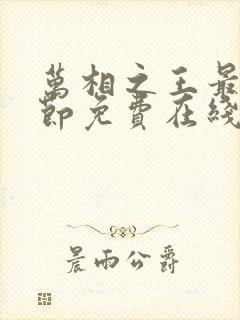 萬相之王最
節免費在綫
晨雨公爵